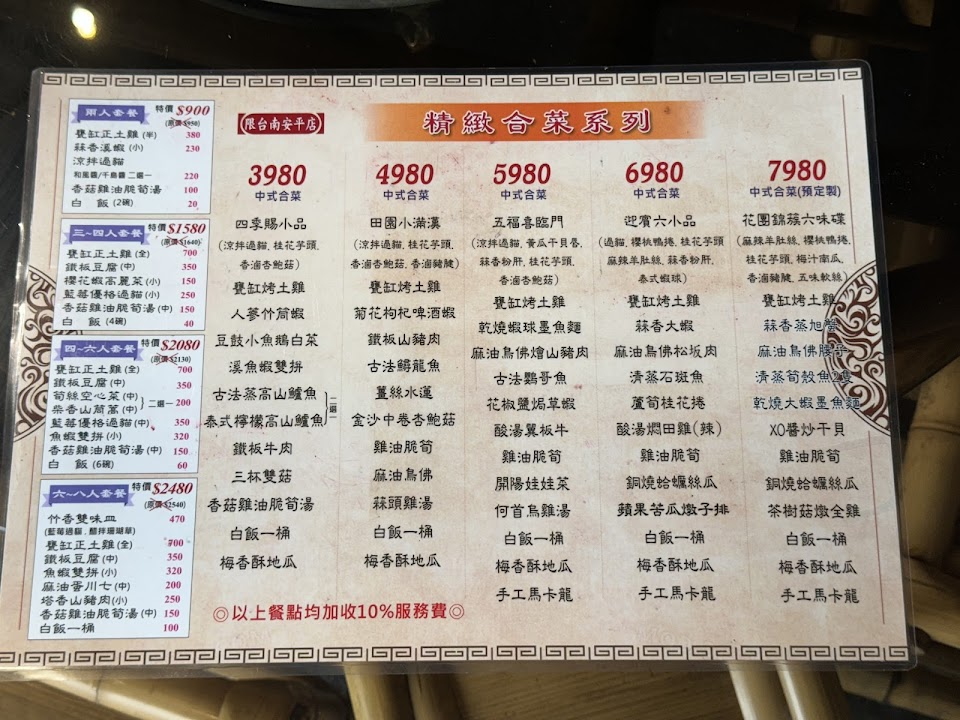 兩人套餐 特價 $900
(原價 $950)
甕缸正土雞 (半) 380
蒜香溪蝦 (小) 230
涼拌過貓
和風醬/千島醬 二選一 220
香菇雞油脆筍湯 100
白 飯 (2碗) 20
三~四人套餐 特價 $1580
(原價 $1640)
甕缸正土雞 (全) 700
鐵板豆腐 (中) 350
櫻花蝦高麗菜 (小) 150
藍莓優格過貓 (小) 250
香菇雞油脆筍湯 (中) 150
白 飯 (4碗) 40
四~六人套餐 特價 $2080
(原價 $2130)
甕缸正土雞 (全) 700
鐵板豆腐 (中) 350
筍絲空心菜 (中)
柴香山茼蒿 (中) 二選一 200
藍莓優格過貓 (中) 350
魚蝦雙拼 (小) 320
香菇雞油脆筍湯 (中) 150
白 飯 (6碗) 60
六~八人套餐 特價 $2480
(原價 $2540)
竹香雙味皿 470
(藍莓過貓, 醋拌珊瑚草)
甕缸正土雞 (全) 700
鐵板豆腐 (中) 350
魚蝦雙拼 (小) 320
麻油蛋川七 (中) 200
塔香山豬肉 (小) 250
香菇雞油脆筍湯 (中) 150
白飯一桶 100
限台南安平店
精緻合菜系列
3980
中式合菜
四季賜小品
(涼拌過貓, 桂花芋頭,
香滷杏鮑菇)
甕缸烤土雞
人蔘竹筒蝦
豆鼓小魚鵝白菜
溪魚蝦雙拼
古法蒸高山鱸魚
泰式檸檬高山鱸魚
二選一
鐵板牛肉
三杯雙菇
香菇雞油脆筍湯
白飯一桶
梅香酥地瓜
4980
中式合菜
田園小滿漢
(涼拌過貓, 桂花芋頭,
香滷杏鮑菇, 香滷豬腱)
甕缸烤土雞
菊花枸杞啤酒蝦
鐵板山豬肉
古法鱘龍魚
薑絲水蓮
金沙中卷杏鮑菇
雞油脆筍
麻油鳥佛
蒜頭雞湯
白飯一桶
梅香酥地瓜
5980
中式合菜
五福喜臨門
(涼拌過貓, 黃瓜干貝唇,
蒜香粉肝, 桂花芋頭,
香滷杏鮑菇)
甕缸烤土雞
乾燒蝦球墨魚麵
麻油鳥佛燴山豬肉
古法鸚哥魚
花椒鹽焗草蝦
酸湯翼板牛
雞油脆筍
開陽娃娃菜
何首烏雞湯
白飯一桶
梅香酥地瓜
手工馬卡龍
6980
中式合菜
迎賓六小品
(過貓, 櫻桃鴨捲, 桂花芋頭
麻辣羊肚絲, 蒜香粉肝,
泰式蝦球)
甕缸烤土雞
蒜香大蝦
麻油鳥佛松坂肉
清蒸石斑魚
蘆筍桂花捲
酸湯燜田雞(辣)
雞油脆筍
銅燒蛤蠣絲瓜
蘋果苦瓜燉子排
白飯一桶
梅香酥地瓜
手工馬卡龍
7980
中式合菜(預定製)
花團錦簇六味碟
(麻辣羊肚絲, 櫻桃鴨捲,
桂花芋頭, 梅汁南瓜,
香滷豬腱, 五味軟絲)
甕缸烤土雞
蒜香蒸旭蟹
麻油鳥佛腰子
清蒸筍殼魚2隻
乾燒大蝦墨魚麵
XO醬炒干貝
雞油脆筍
銅燒蛤蠣絲瓜
茶樹菇燉全雞
白飯一桶
梅香酥地瓜
手工馬卡龍
◎以上餐點均加收10%服務費◎